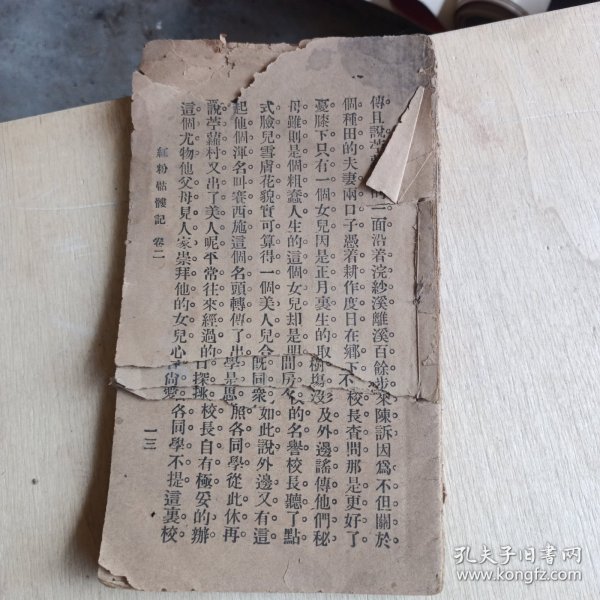 傳且說苧 一面沿着浣紗溪離溪百餘步
來陳訴因爲不但關於
個種田的夫妻兩口子憑着耕作度日在鄉下不
校長查問那是更好了
憂膝下只有一個女兒因是正月裏生的取
及外邊謠傳他們秘
母雖則是個粗蠢人生的這個女兒却是
間房 的名譽校長聽了點
式臉兒雪膚花貌實可算得一個美人兒
既同衆 如此說外邊又有這
起他個渾名叫賽西施這個名頭轉傳了出
學是 照各同學從此休再
說苧蘿村又出了美人呢平常往來經過的
探 校長自有極妥的辦
這個尤物他父母見人家崇拜他的女兒心
各同學不提這裏校
紅粉骷髏記 卷二
一三
孔夫子旧书网
www.kongfz.com